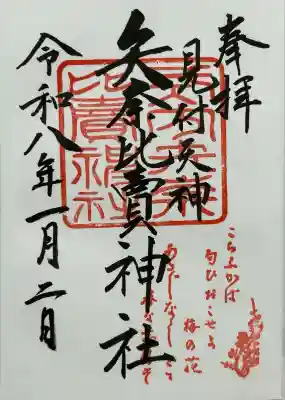 奉拝
見付天神
矢奈比賣神社
令和八年一月二日
こちふかば
匂ひおこせよ
梅の花
あるじなしとて